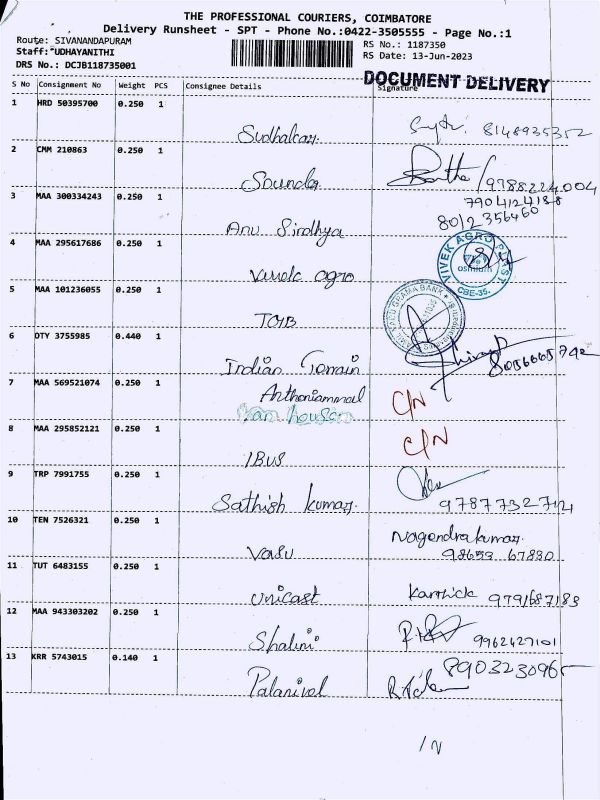 THE PROFESSIONAL COURIERS, COIMBATORE
Delivery Runsheet - SPT - Phone No.:0422-3505555 - Page No.:1
Route: SIVANANDAPURAM
RS No.: 1187350
Staff: UDHAYANITHI
RS Date: 13-Jun-2023
DRS No.: DCJB118735001
DOCUMENT DELIVERY
S No Consignment No Weight PCS Consignee Details Signature
1 HRD 50395700 0.250 1
8148935352
2 CMM 210863 0.250 1
9788224004
3 MAA 300334243 0.250 1
7904124188
8012356460
Anu Sindhya
4 MAA 295617686 0.250 1
VIVEK AGRO
CBE-35.
agro
5 MAA 101236055 0.250 1
GRAMA BANK
TGB
6 OTY 3755985 0.440 1
8056665742
Indian
7 MAA 569521074 0.250 1
Anthoniammal
C/N
8 MAA 295852121 0.250 1
C/N
IBUS
9 TRP 7991755 0.250 1
Sathish kumar.
9787732714
10 TEN 7526321 0.250 1
Nagendrakumar.
98653 67830
Vasu
11 TUT 6483155 0.250 1
Unicast Karthick 9791687183
12 MAA 943303202 0.250 1
Shalini 9962427101
13 KRR 5743015 0.140 1
8903230965
Palanivel
/ N